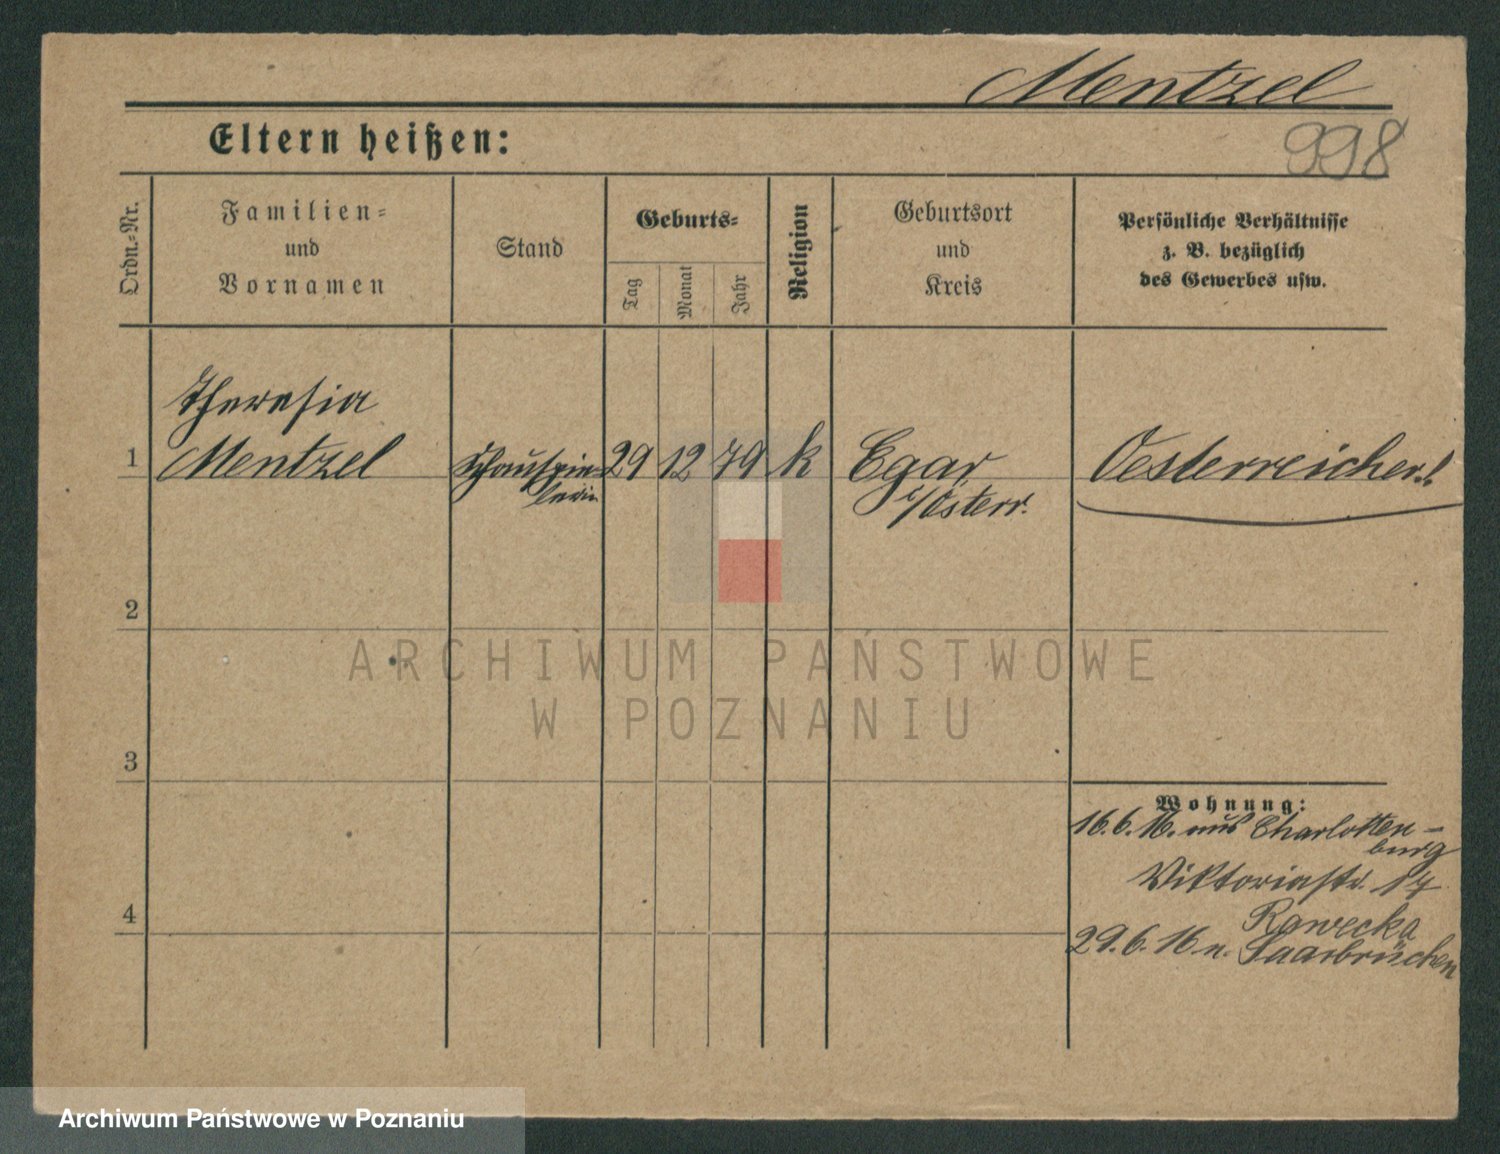 Mentzel
998
Eltern heißen:
Ordn.-Nr.
Familien-
und
Vornamen
Stand
Geburts-
Tag
Monat
Jahr
Religion
Geburtsort
und
Kreis
Persönliche Verhältnisse
z. B. bezüglich
des Gewerbes usw.
Theresia
1 Mentzel Schauspie- 29 12 79 k Egar Oesterreicher!
lerin i/Österr.
2
ARCHIWUM PAŃSTWOWE
W POZNANIU
3
Wohnung:
16.6.16. aus Charlotten-
burg
Viktoriastr. 17
4
Rawecka
29.6.16 n. Saarbrücken
Archiwum Państwowe w Poznaniu